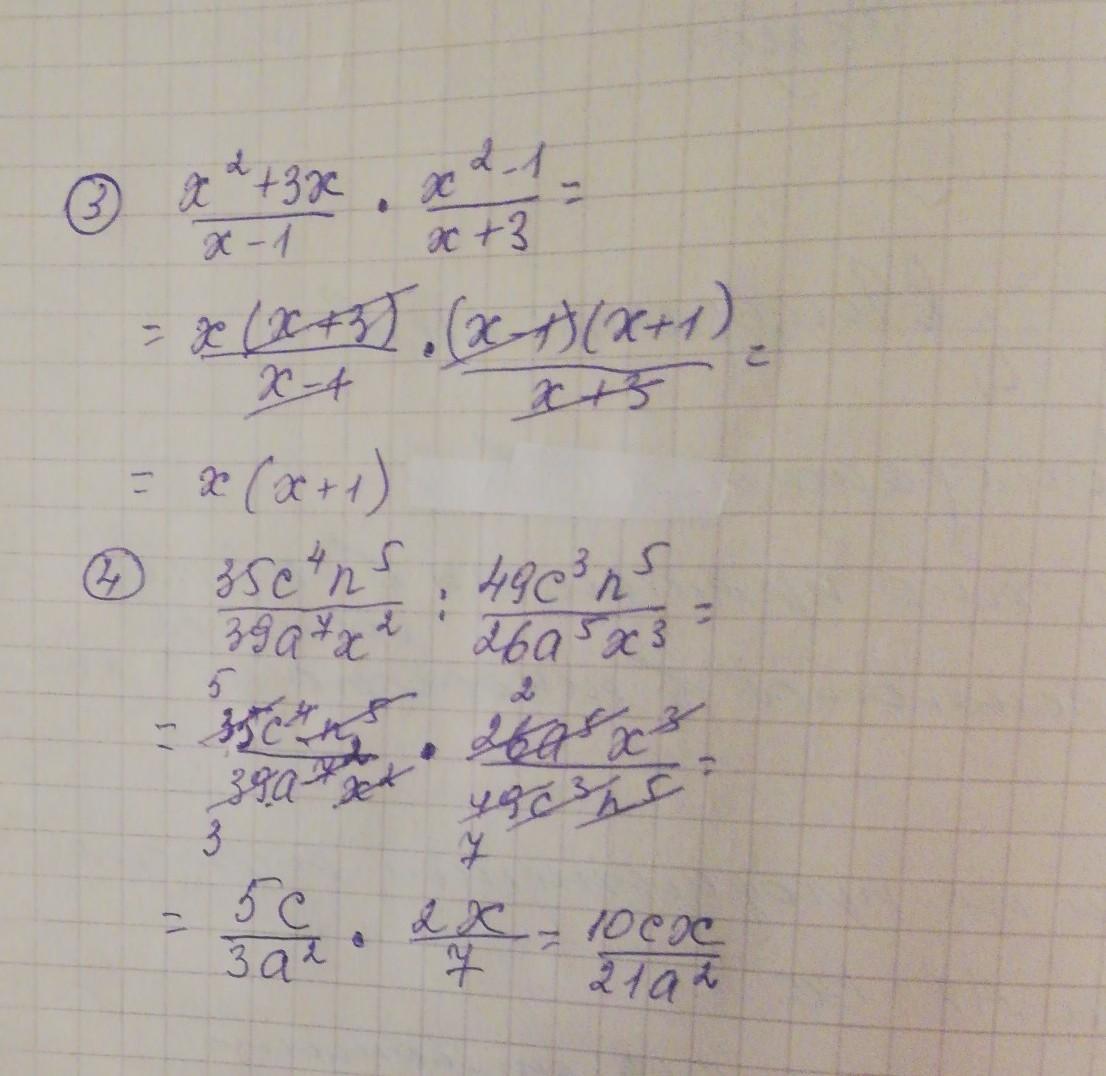 ③ (x²+3x)/(x-1) · (x²-1)/(x+3) =
= x(x+3)/(x-1) · (x-1)(x+1)/(x+3) =
= x(x+1)
④ 35c⁴n⁵/39a⁷x² : 49c³n⁵/26a⁵x³ =
5 2
= 35c⁴n⁵/39a⁷x² · 26a⁵x³/49c³n⁵ =
3 7
= 5c/3a² · 2x/7 = 10cx/21a²